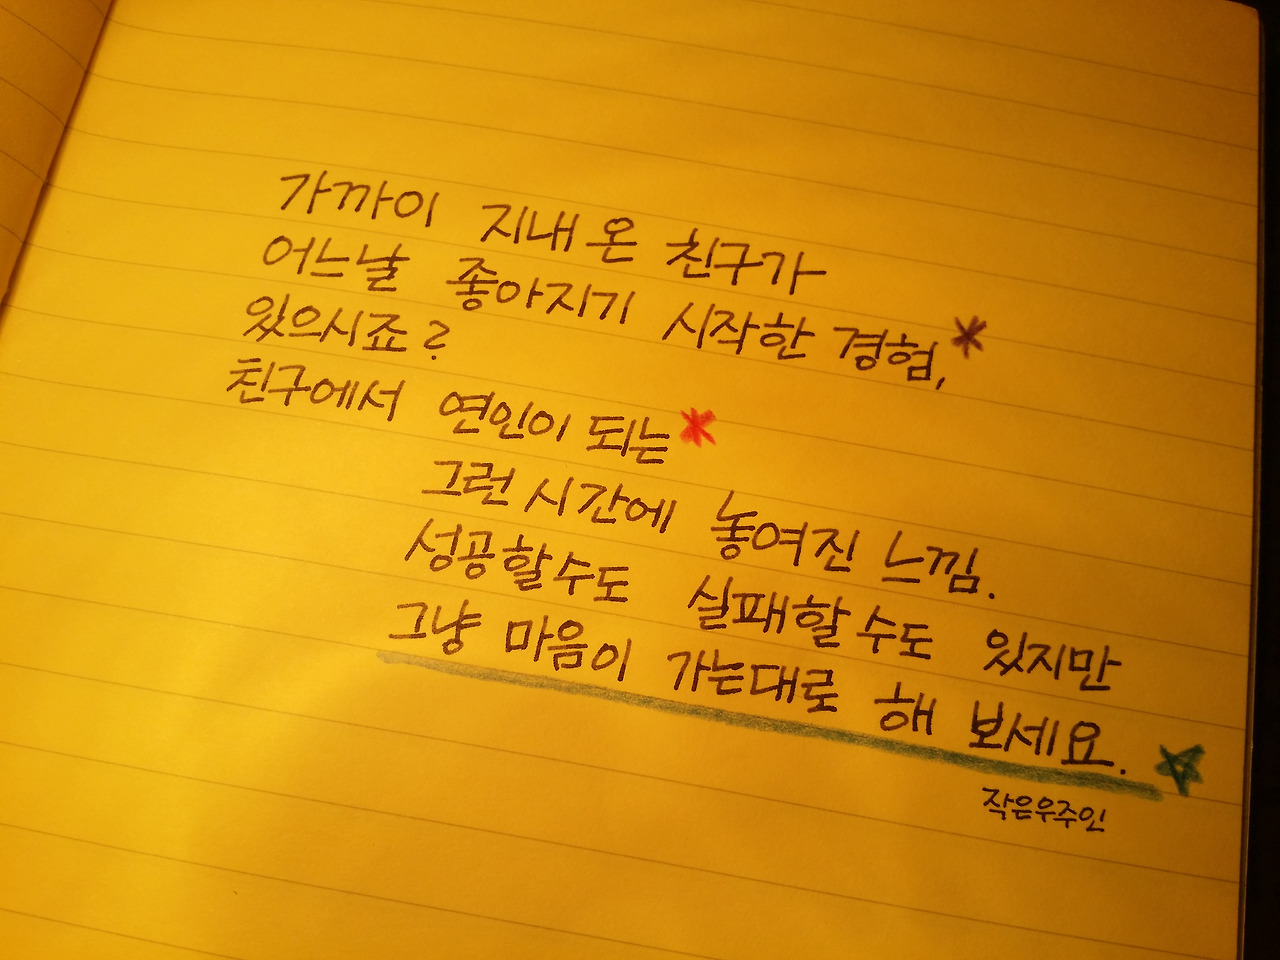 가까이 지내온 친구가
어느날 좋아지기 시작한 경험,
있으시죠?
친구에서 연인이 되는
그런 시간에 놓여진 느낌.
성공할수도 실패할수도 있지만
그냥 마음이 가는대로 해 보세요.
작은우주인